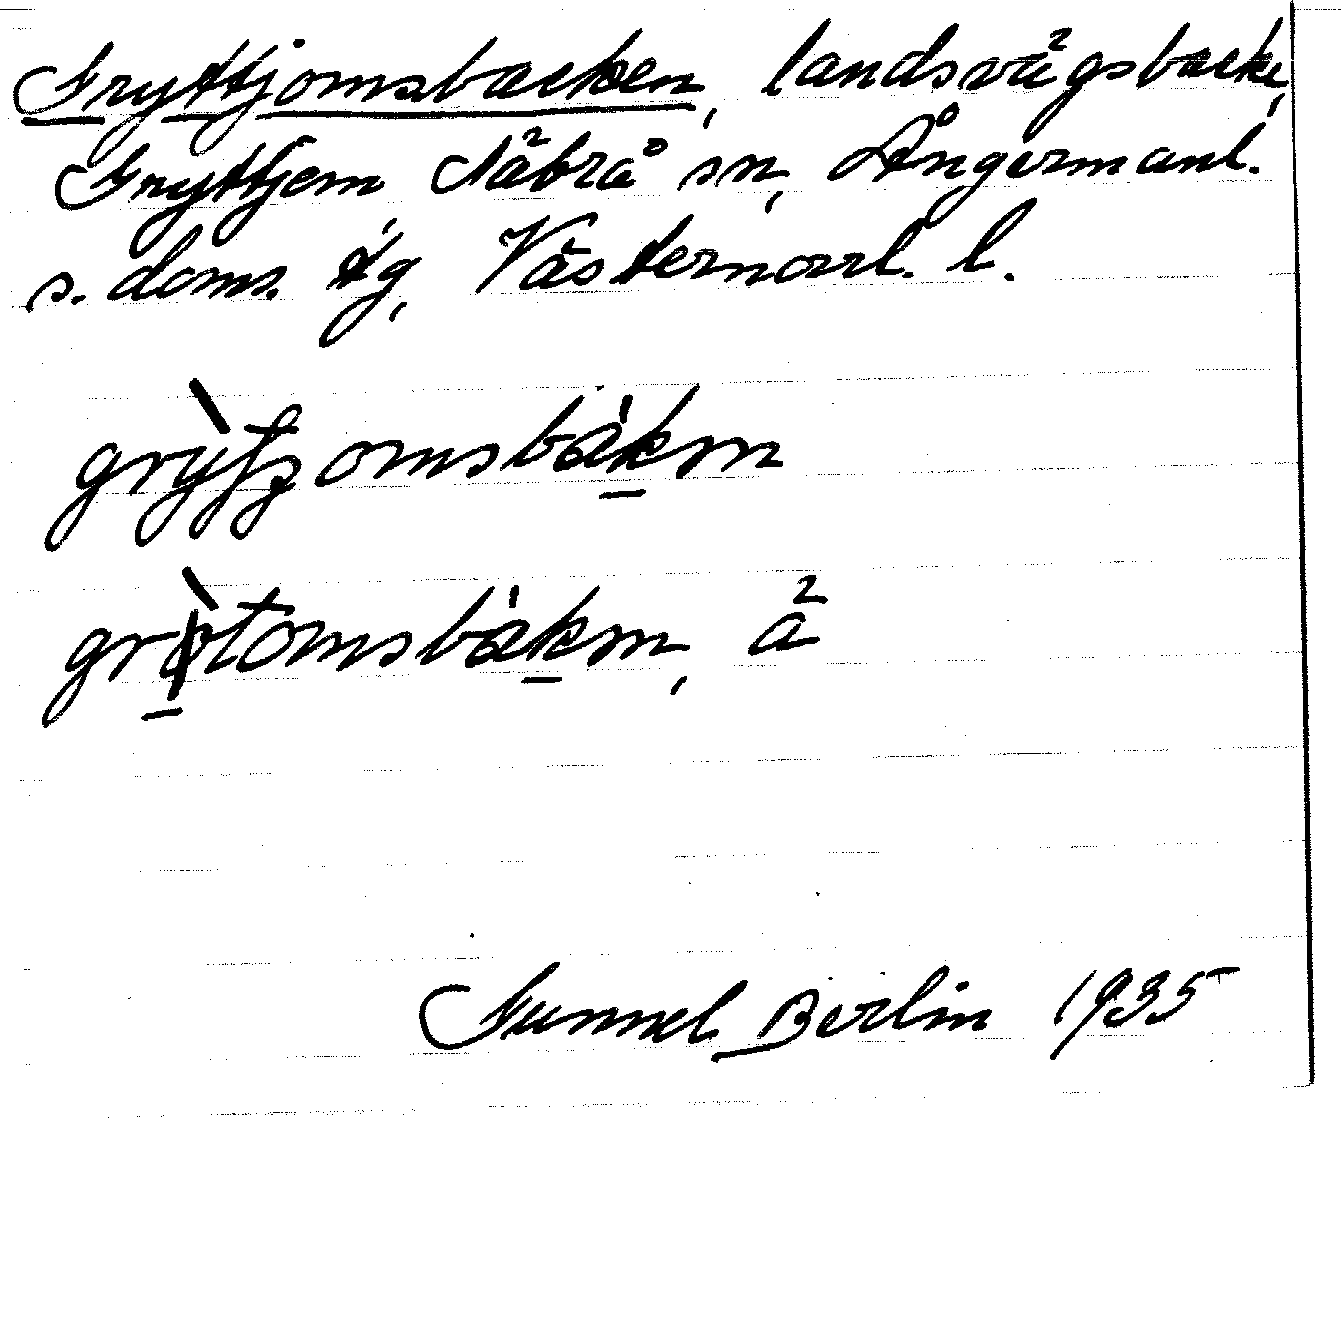 Gryttjomsbacken, landsvägsbacke,
Gryttjem Näbrå sn, Ångermanl.
s. doms. , Västernorrl. l.
grỳtjomsbákm
tomsbákm, ä
Gunnel Berlin 1935